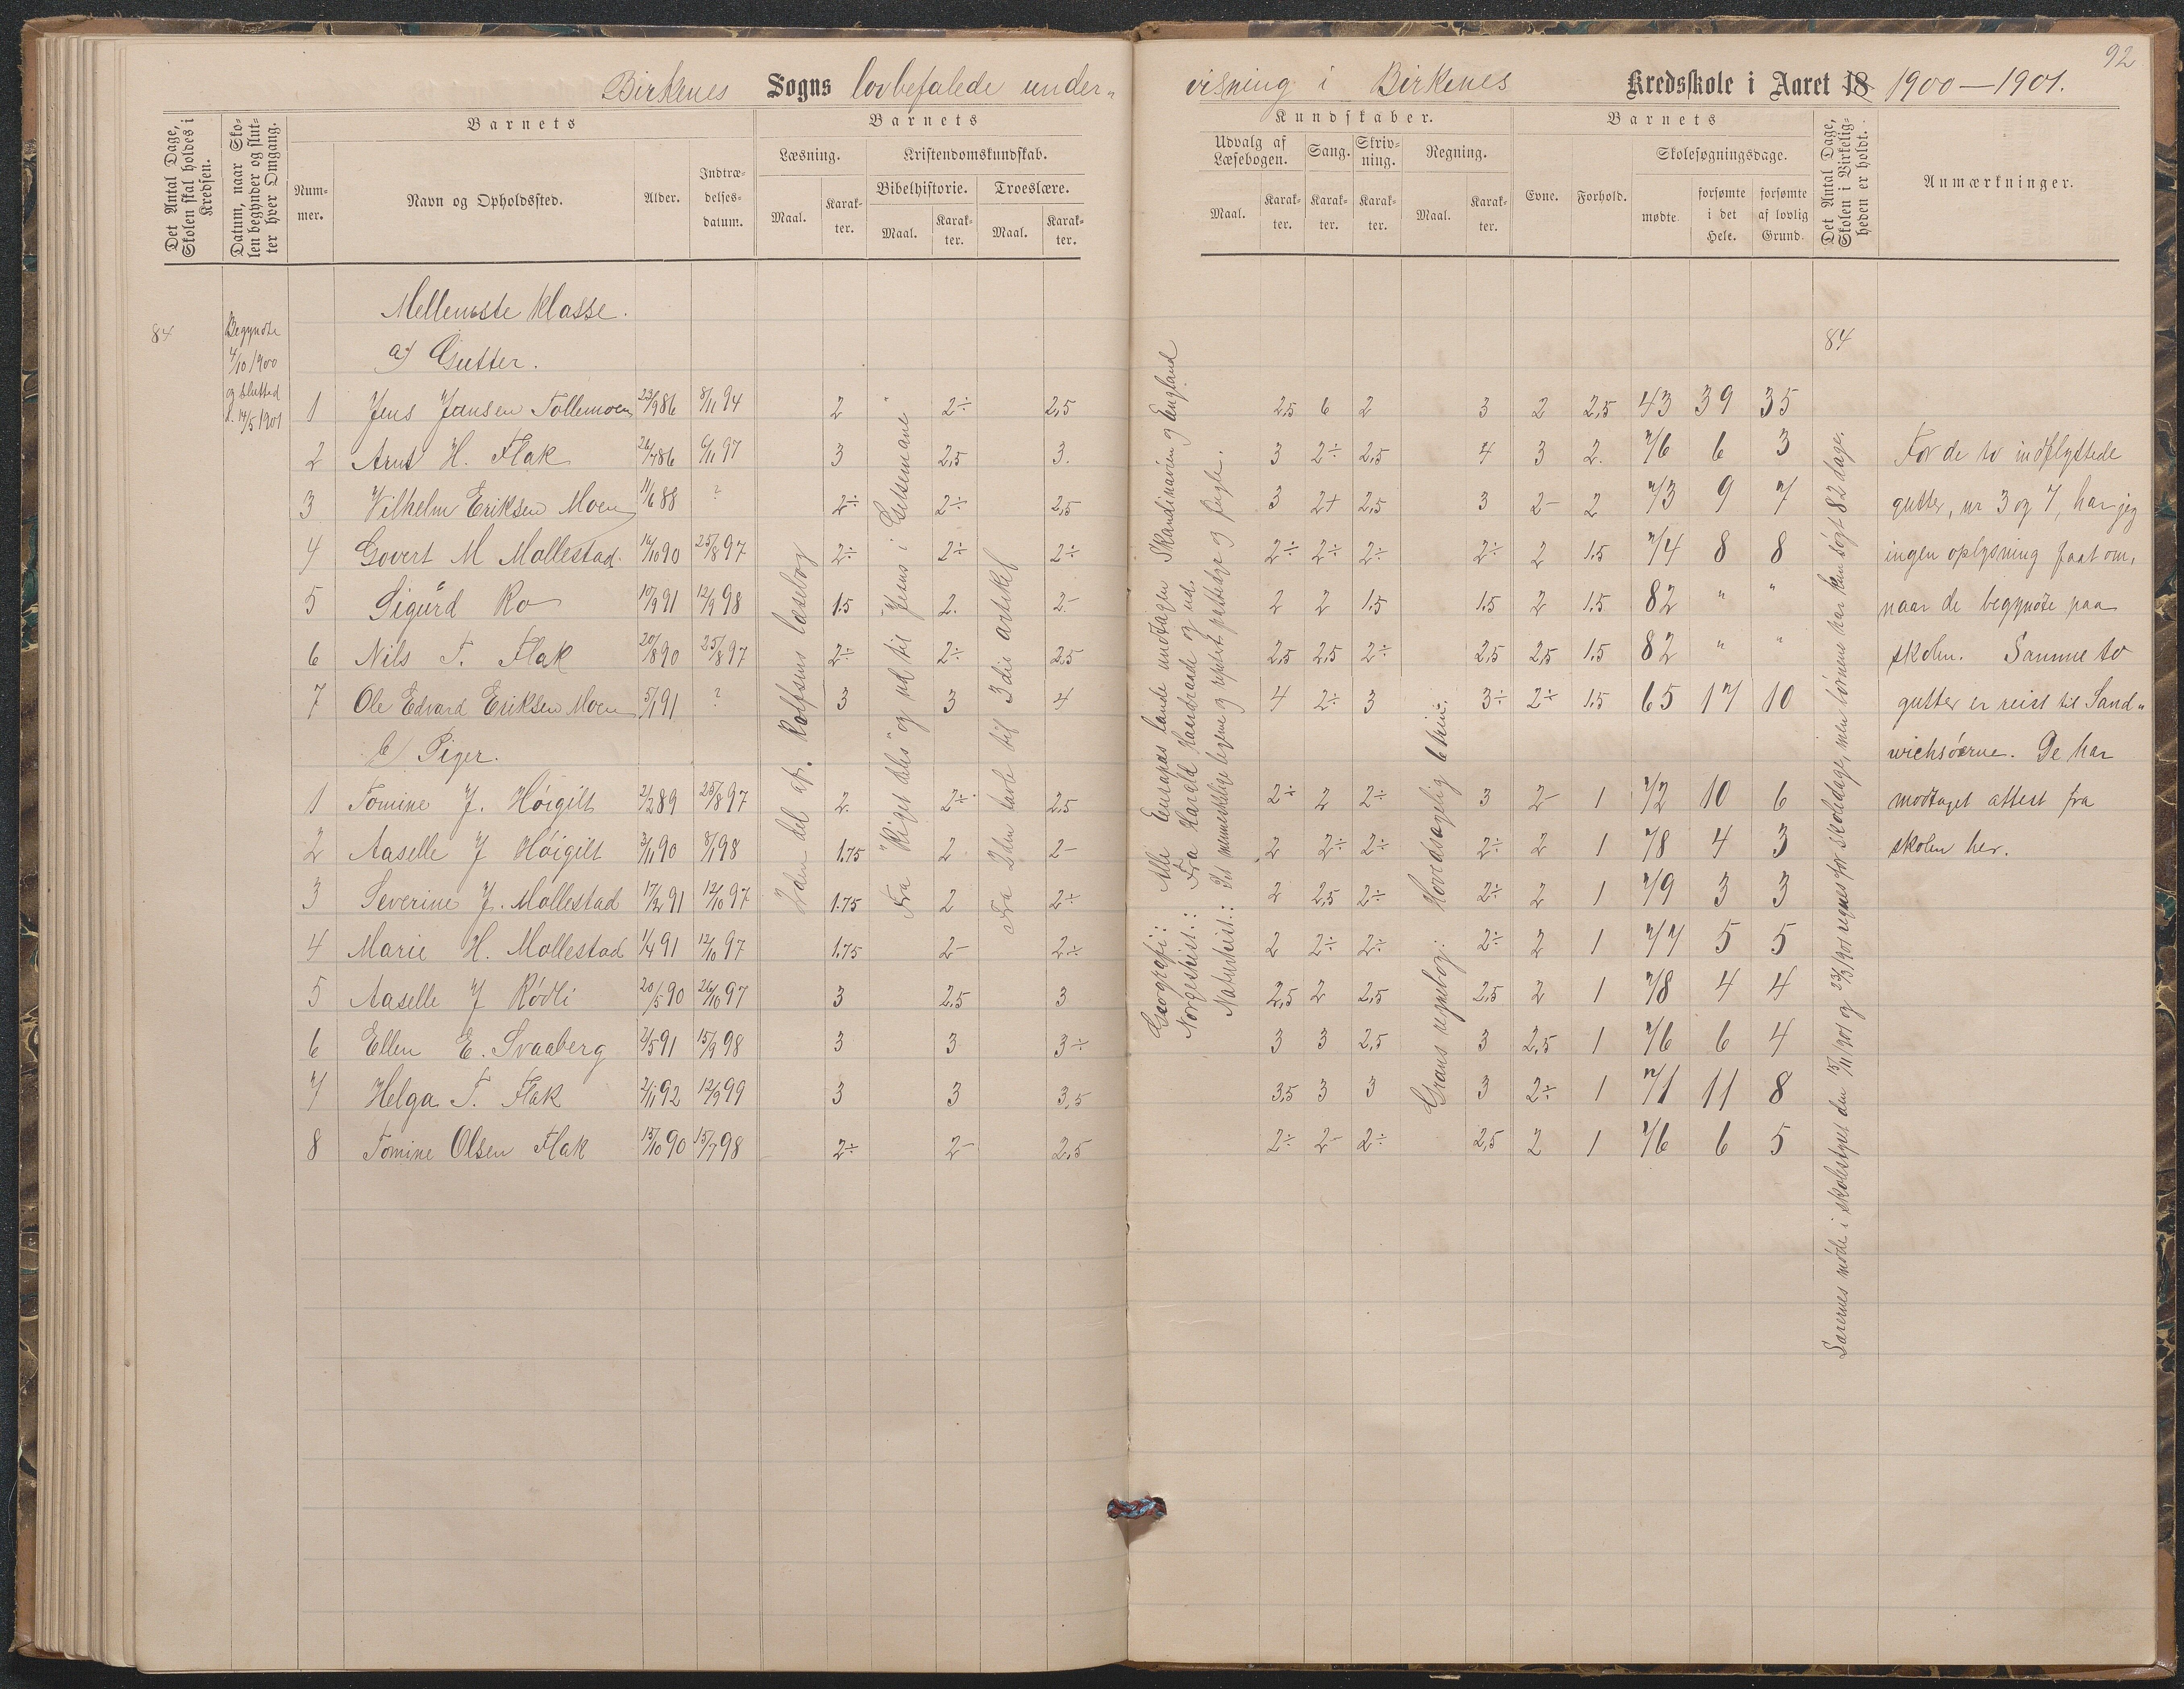 92
Birkenes Sogns lovbefalede under„ visning i Birkenes Kredsskole i Aaret 18 1900—1901.
Det Antal Dage, Skolen skal holdes i Kredsen.
Datum, naar Skolen begynder og slutter hver Omgang.
Barnets
Nummer.
Navn og Opholdssted.
Alder.
Indtrædelsesdatum.
Barnets
Læsning.
Maal.
Karakter.
Kristendomskundskab.
Bibelhistorie.
Maal.
Karakter.
Troeslære.
Maal.
Karakter.
Kundskaber.
Udvalg af Læsebogen.
Maal.
Karakter.
Sang.
Karakter.
Skrivning.
Karakter.
Regning.
Maal.
Karakter.
Barnets
Evne.
Forhold.
Skolesøgningsdage.
mødte
forsømte i det Hele.
forsømte af lovlig Grund.
Det Antal Dage, Skolen i Virkeligheden er holdt.
Anmærkninger.
84
Begyndte
4/10 1900
og slutted
d. 14/5 1901
Mellemste klasse.
a) Gutter.
84
1 Jens Jansen Tollemoen 23/9 86 8/11 94 2 2÷ 2,5 2,5 6 2 3 2 2,5 43 39 35
2 Arnt H. Flak 26/7 86 6/11 97 3 2,5 3. 3 2÷ 2,5 4 3 2. 76 6 3
3 Vilhelm Eriksen Moen 11/6 88 ? 2÷ 2÷ 2,5 3 2+ 2,5 3 2- 2 73 9 7
4 Govert M Mollestad. 16/10 90 25/8 97 2÷ 2÷ 2÷ 2÷ 2÷ 2÷ 2÷ 2 1.5 74 8 8
5 Sigurd Ro 10/9 91 12/9 98 1.5 2. 2- 2 2 1.5 1.5 2 1.5 82 " "
6 Nils T. Flak 20/8 90 25/8 97 2÷ 2÷ 2,5 2,5 2,5 2÷ 2,5 2,5 1.5 82 " "
7 Ole Edvard Eriksen Moen 5/1 91 ? 3 3 4 4 2÷ 3 3÷ 2÷ 1.5 65 17 10
b) Piger.
1 Tomine J. Høigilt 2/2 89 25/8 97 2. 2÷ 2,5 2÷ 2 2÷ 3 2- 1 72 10 6
2 Aaselle J Høigilt 3/11 90 8/1 98 1.75 2 2- 2 2÷ 2÷ 2÷ 2 1 78 4 3
3 Severine J. Mollestad 17/2 91 12/10 97 1.75 2 2÷ 2 2,5 2÷ 2÷ 2 1 79 3 3
4 Marie H. Mollestad 1/4 91 12/10 97 1.75 2- 2÷ 2 2÷ 2÷ 2÷ 2 1 77 5 5
5 Aaselle J Rødli 20/5 90 26/10 97 3 2,5 3 2,5 2 2,5 2,5 2 1 78 4 4
6 Ellen E. Svaaberg 4/5 91 15/9 98 3 3 3÷ 3 3 2,5 3 2,5 1 76 6 4
7 Helga T. Flak 2/11 92 12/9 99 3 3 3,5 3,5 3 3 3 2÷ 1 71 11 8
8 Tomine Olsen Flak 15/10 90 15/7 98 2÷ 2- 2,5 2÷ 2- 2÷ 2,5 2 1 76 6 5
2den del af Rolfsens læsebog
Fra "Riget deles" og ud til "Jesus i Getsemane"
Fra 2den tavle til 3die artikel
Geografi: Alle Europas lande undtagen Skandinavien og England
Norgeshist.: Fra Harald Haardraade og ud.
Naturhist.: Det menneskelige legeme og pattedyr og fugle.
Grans regnebog: Hovedsagelig brøk.
Lærernes møde i skolestyret den 15/11 1901 og 30/3 1901 regnes for skoledage, men børnene har kun søgt 82 dage.
For de to indflyttede
gutter, nr 3 og 7, har jeg
ingen oplysning faat om,
naar de begyndte paa
skolen. Samme to
gutter er reist til Sand„
wichsøerne. De har
modtaget attest fra
skolen her.